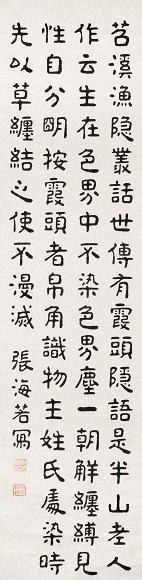 苕溪漁隱叢話世傳有霞頭隱語是半山老人
作云生在色界中不染色界塵一朝解纏縛見
性自分明按霞頭者帛角識物主姓氏處染時
先以草纏結之使不漫滅 張海若寫